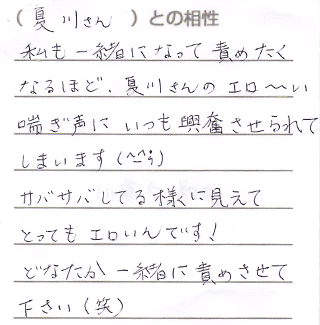 （夏川さん　）との相性
私も一緒になって責めたく
なるほど、夏川さんのエロ〜い
喘ぎ声にいつも興奮させられて
しまいます(^^;)
サバサバしてる様に見えて
とってもエロいんです！
どなたか一緒に責めさせて
下さい（笑）